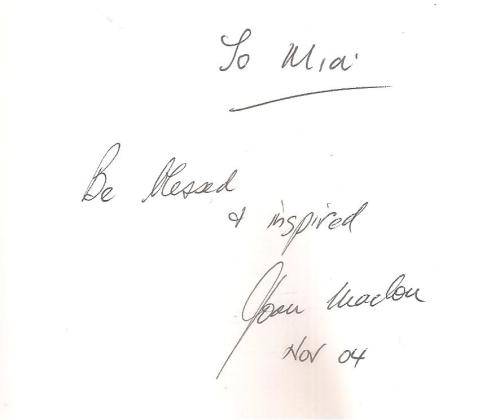 To Mia
Be blessed
& inspired
Joan
Nov 04